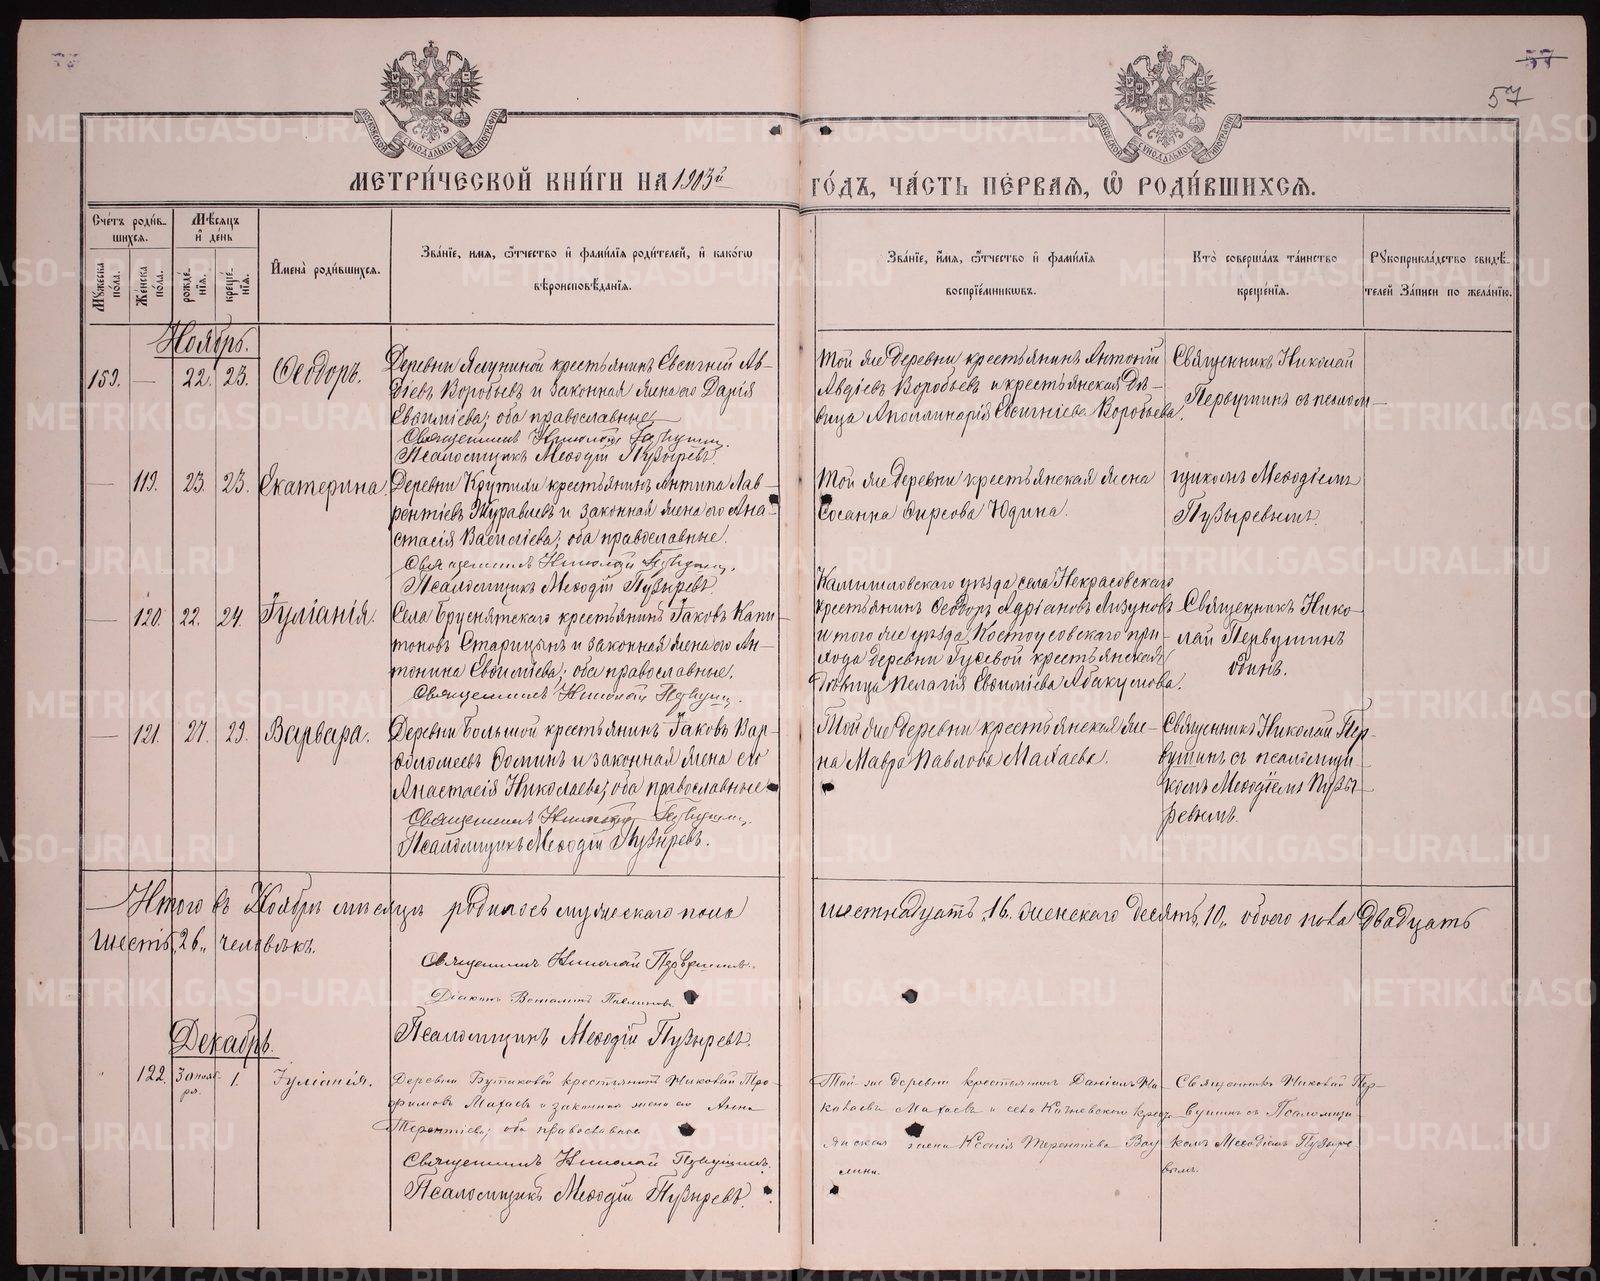 57
57
МЕТРИ́ЧЕСКОЙ КНИ́ГИ НА 1903й
ГО́ДЪ, ЧА́СТЬ ПЕ́РВАЯ, Ѡ҆ РОДИ́ВШИХСЯ.
Сче́тъ роди́в-
шихся.
Мѣ́сяцъ
и҆ де́нь
Мꙋжеска по́ла.
Же́нска по́ла.
рожде́нїя.
креще́нїя.
И҆мена̀ роди́вшихся.
Зва́нїе, имя, ѻ҆́тчество и҆ фами́лїя роди́телей, и҆ како́гѡ
вѣроисповѣ́данїя.
Зва́нїе, и҆́мя, ѻ҆́тчество и҆ фами́лїя
воспрїе́мникѡвъ.
Кто̀ соверша́лъ та́инство
креще́нїя.
Рꙋкоприкла́дство свидѣ́-
телей За́писи по жела́нїю.
Ноябрь.
159. — 22. 23. Ѳеодоръ.
Деревни Ялуниной крестьянинъ Евсигній Ав-
діевъ Воробьевъ и законная жена его Дарія
Евѳиміева; оба православные
Священникъ Николай Первушин.
Псаломщикъ Меѳодій Пузыревъ.
Той же деревни крестьянинъ Антоній
Авдіевъ Воробьевъ и крестьянская дѣ-
вица Аполлинарія Евсигніева Воробьева.
Священникъ Николай
Первушинъ с псалом-
— 119. 23. 23. Екатерина
Деревни Крутихи крестьянинъ Антипа Лав-
рентіевъ Журавлевъ и законная жена его Ана-
стасія Васильева; оба православные.
Священникъ Николай Первушин.
Псаломщикъ Меѳодій Пузыревъ
Той же деревни крестьянская жена
Сосанна Ѳирсова Юдина.
щикомъ Меѳодіемъ
Пузыревымъ.
— 120. 22. 24. Іуліанія.
Села Бруснятскаго крестьянинъ Іаковъ Капи-
тоновъ Старицынъ и законная жена его Ан-
тонина Евѳиміева; оба православные.
Священникъ Николай Первушин.
Камышловскаго уѣзда села Некрасовскаго
крестьянинъ Ѳеодоръ Адріановъ Лизуновъ
и того же уѣзда, Костоусовскаго при-
хода деревни Гусевой крестьянская
дѣвица Пелагія Евѳиміева Абакумова.
Священникъ Нико-
лай Первушинъ
одинъ.
— 121. 27. 29. Варвара.
Деревни Большой крестьянинъ Іаковъ Вар-
ѳоломеевъ Ѳоминъ и законная жена его
Анастасія Николаева; оба православные
Священникъ Николай Первушин.
Псаломщикъ Меѳодій Пузыревъ.
Той же деревни крестьянская же-
на Мавра Павлова Махаева.
Священникъ Николай Пер-
вушинъ с псаломщи-
комъ Меѳодіемъ Пузы-
ревымъ.
Итого въ Ноябрѣ мѣсяцѣ родилось мужескаго пола шестнадцать „16. женскаго десять „10„ обоего пола двадцать
шесть „26„ человѣкъ.
Священникъ Николай Первушинъ.
Діаконъ
Псаломщикъ Меѳодій Пузыревъ.
Декабрь.
„ 122. 30 нояб-
ря. 1. Іуліанія.
Деревни Бутиковой крестьянинъ Николай Тро-
фимовъ Махаев и законная жена его Анна
Терентіева; оба православные
Священникъ Николай Первушинъ.
Псаломщикъ Меѳодій Пузыревъ.
Той-же деревни крестьянинъ Даніилъ Ни-
колаевъ Махаевъ и села Кочневскаго крест-
янская жена Ксенія Терентіева
Священникъ Николай Пер-
вушинъ съ Псаломщи-
комъ Меѳодіемъ Пузыре-
вымъ.
METRIKI.GASO-URAL.RU